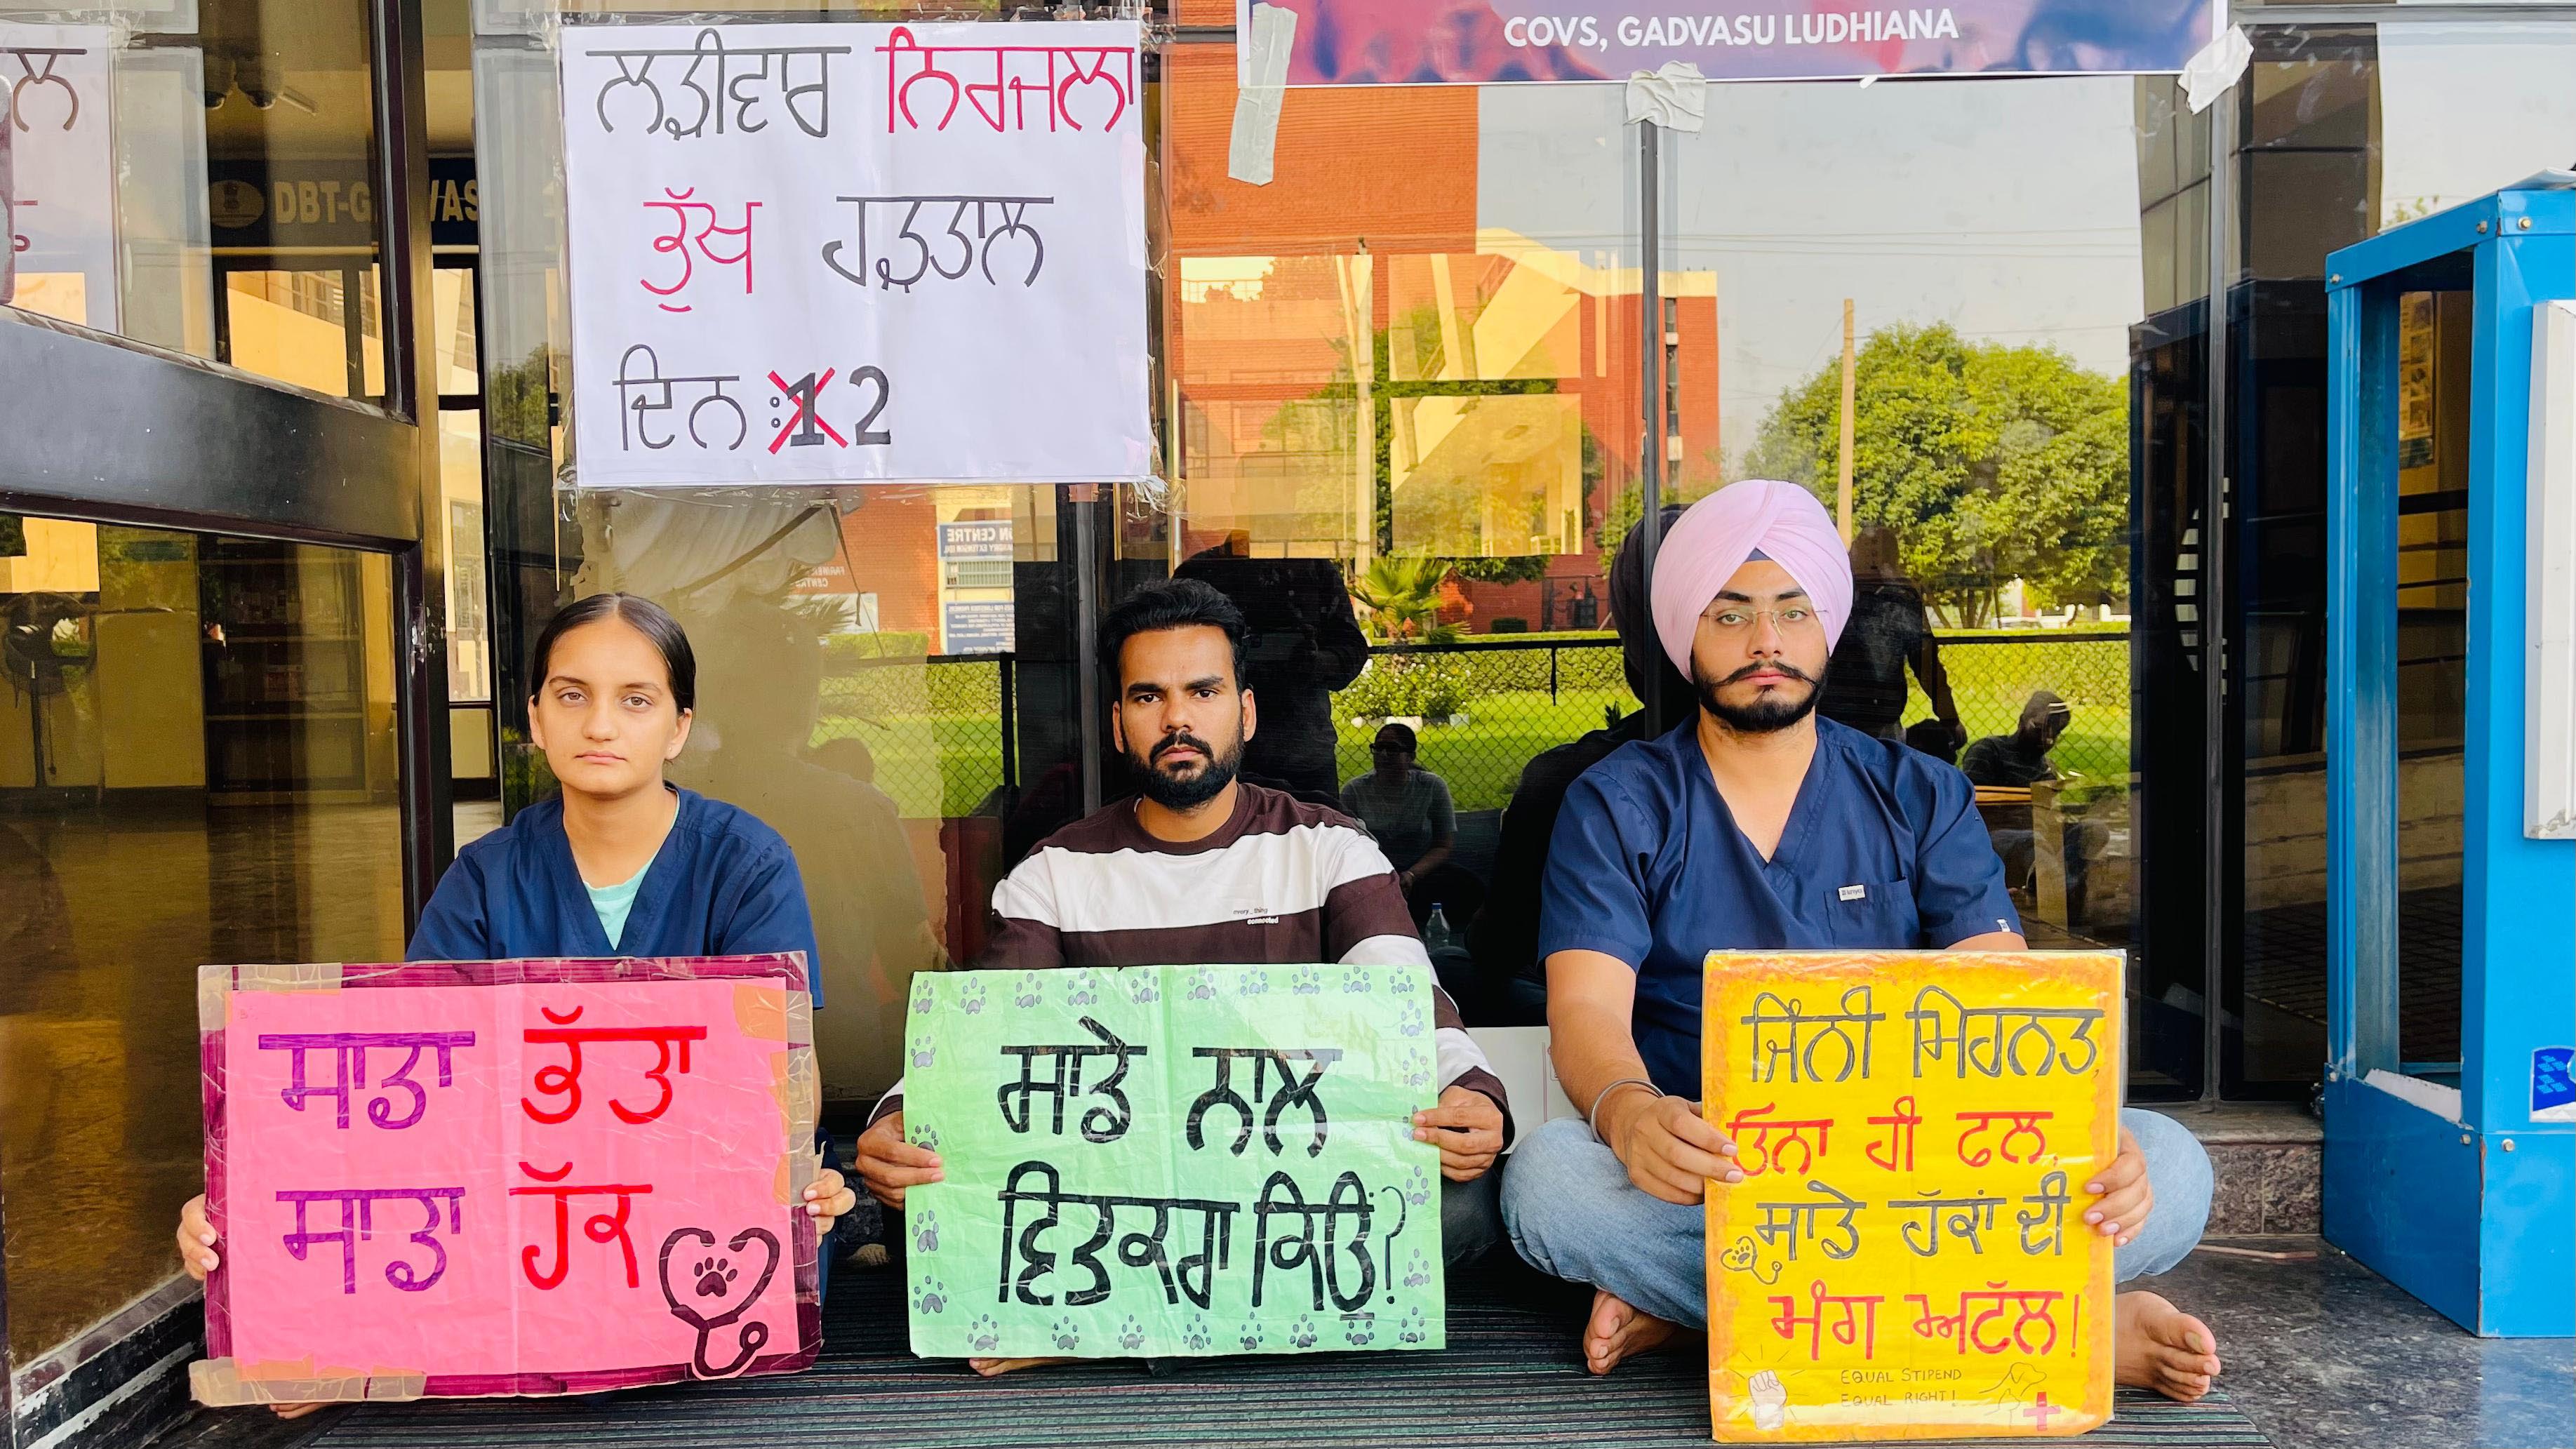 COVS, GADVASU LUDHIANA
ਲੜੀਵਾਰ ਨਿਰਜਲਾ
ਭੁੱਖ ਹੜਤਾਲ
ਦਿਨ :1 2
DBT-G
ਸਾਡਾ ਭੱਤਾ
ਸਾਡਾ ਹੱਕ
ਸਾਡੇ ਨਾਲ
ਵਿਤਕਰਾ ਕਿਉਂ?
every_thing
connected
ਜਿੰਨੀ ਮਿਹਨਤ,
ਓਨਾ ਹੀ ਫਲ,
ਸਾਡੇ ਹੱਕਾਂ ਦੀ
ਮੰਗ ਅਟੱਲ!
EQUAL STIPEND
EQUAL RIGHT!